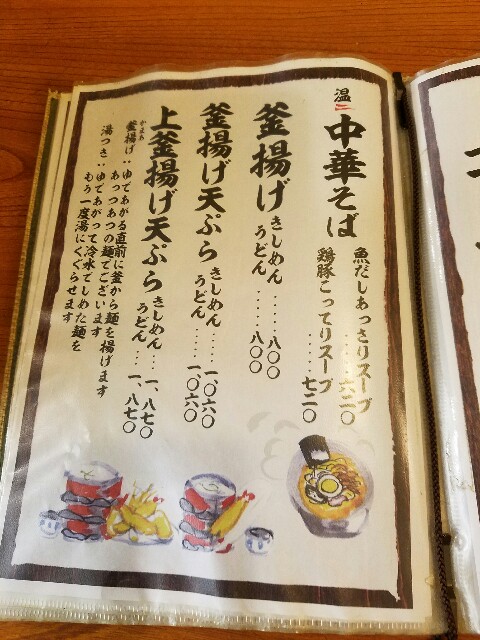 温
中華そば
魚だしあっさりスープ‥‥六二〇
鶏豚こってりスープ‥‥七二〇
釜揚げ
きしめん‥‥八〇〇
うどん‥‥‥八〇〇
釜揚げ天ぷら
きしめん‥‥一、〇六〇
うどん‥‥‥一、〇六〇
上釜揚げ天ぷら
きしめん‥‥一、八七〇
うどん‥‥‥一、八七〇
かまあ
釜揚げ：ゆであがる直前に釜から麺を揚げます
あっつあつの麺でございます
湯つき：ゆであがって冷水でしめた麺を
もう一度湯にくぐらせます